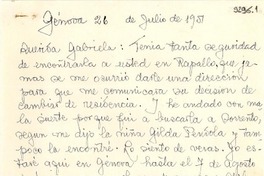 3296.1
Génova 26 de Julio de 1951
Querida Gabriela: Tenía tanta seguridad
de encontrarla a usted en Rapallo, que ja-
mas se me ocurrió darle una dirección
para que me comunicara su decisión de
cambiar de residencia. Y he andado con ma
la suerte porque fui a buscarla a Sorrento,
segun me dijo la niña Gilda Pendola y tam
poco la encontré. Lo siento de veras. Yo es-
taré aquí en Génova hasta el 7 de Agosto